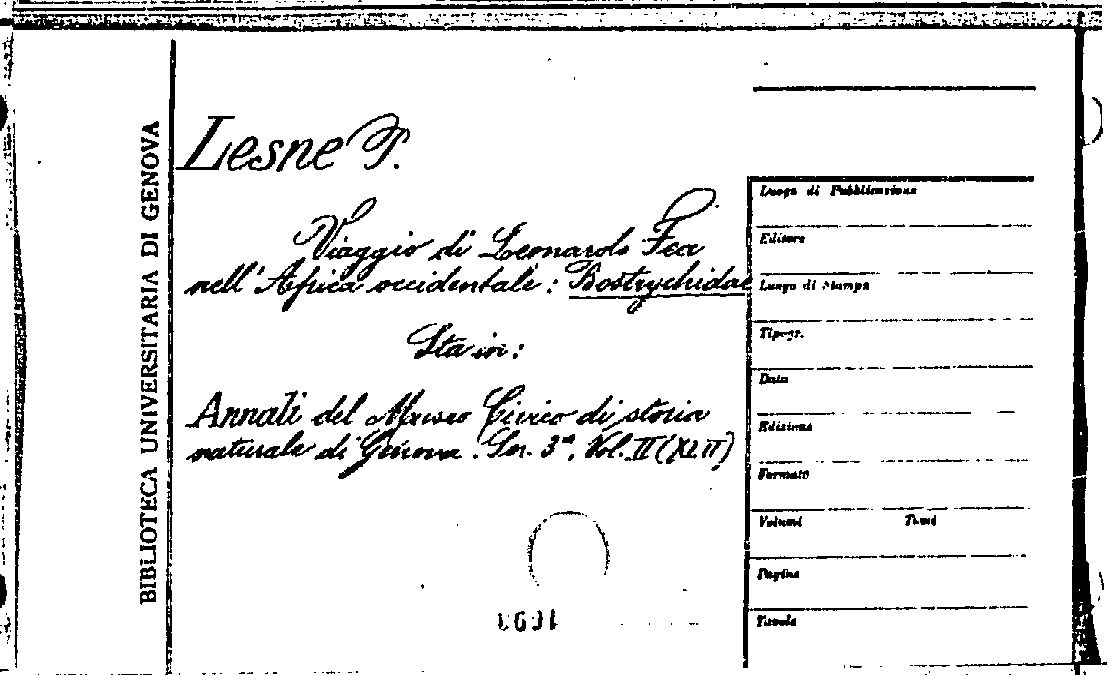 BIBLIOTECA UNIVERSITARIA DI GENOVA
Lesne P.
Viaggio di Leonardo Fea
nell'Africa occidentale: Bostrychidae
Sta in:
Annali del Museo Civico di storia
naturale di Genova. Ser. 3ª, Vol. II (XLII)
Luogo di Pubblicazione
Editore
Luogo di Stampa
Tipogr.
Data
Edizione
Formato
Volumi Tomi
Pagine
Tavole